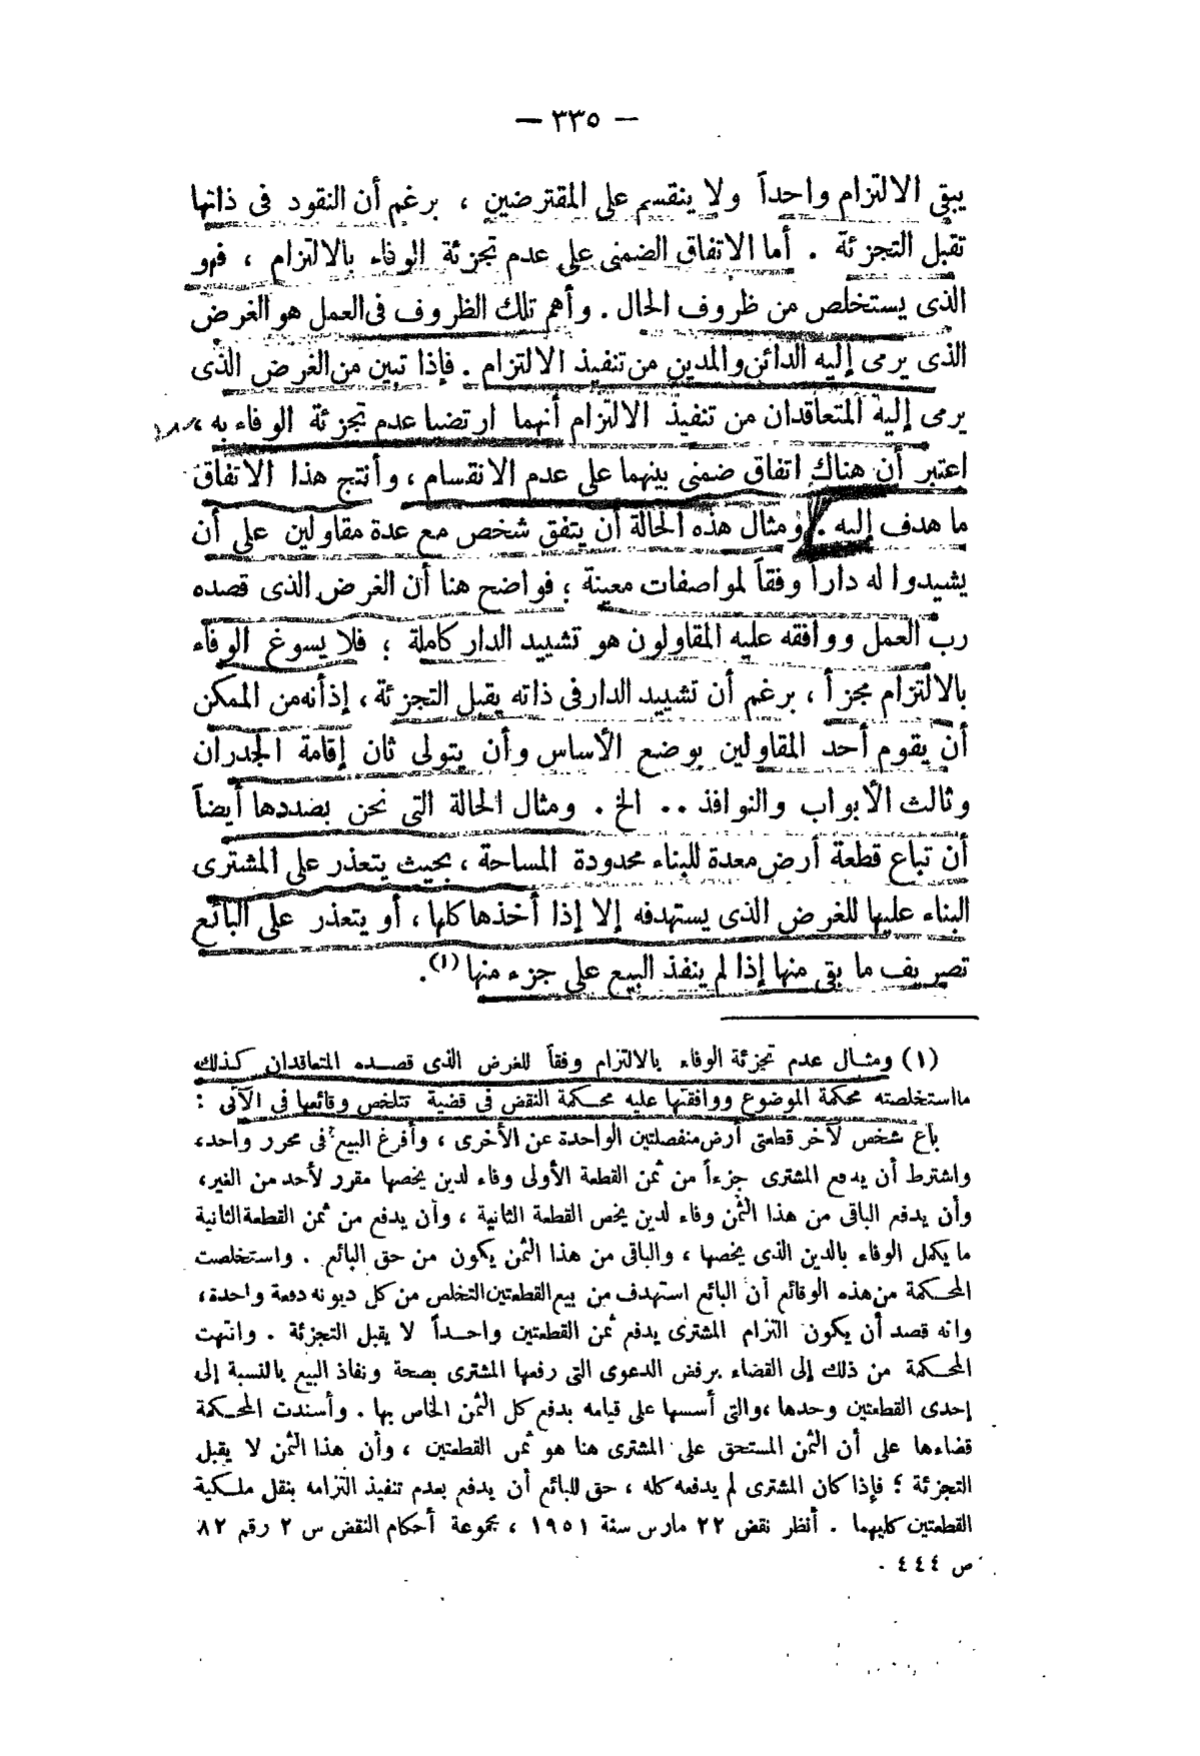 — ٣٣٥ —
يبقى الالتزام واحداً ولا ينقسم على المقترضين ، برغم أن النقود فى ذاتها
تقبل التجزئة . أما الاتفاق الضمنى على عدم تجزئة الوفاء بالالتزام ، فهو
الذى يستخلص من ظروف الحال . وأهم تلك الظروف فى العمل هو الغرض
الذى يرمى إليه الدائن والمدين من تنفيذ الالتزام . فإذا تبين من الغرض الذى
يرمى إليه المتعاقدان من تنفيذ الالتزام أنهما ارتضيا عدم تجزئة الوفاء به ،
اعتبر أن هناك اتفاق ضمنى بينهما على عدم الانقسام ، وأنتج هذا الاتفاق
ما هدف إليه . ومثال هذه الحالة أن يتفق شخص مع عدة مقاولين على أن
يشيدوا له داراً وفقاً لمواصفات معينة ؛ فواضح هنا أن الغرض الذى قصده
رب العمل ووافقه عليه المقاولون هو تشييد الدار كاملة ؛ فلا يسوغ الوفاء
بالالتزام مجزأ ، برغم أن تشييد الدار فى ذاته يقبل التجزئة ، إذ أنه من الممكن
أن يقوم أحد المقاولين بوضع الأساس وأن يتولى ثان إقامة الجدران
وثالث الأبواب والنوافذ .. الخ . ومثال الحالة التى نحن بصددها أيضاً
أن تباع قطعة أرض معدة للبناء محدودة المساحة ، بحيث يتعذر على المشترى
البناء عليها للغرض الذى يستهدفه إلا إذا أخذها كلها ، أو يتعذر على البائع
تصريف ما بقى منها إذا لم ينفذ البيع على جزء منها (١) .
(١) ومثال عدم تجزئة الوفاء بالالتزام وفقاً للغرض الذى قصده المتعاقدان كذلك
ما استخلصته محكمة الموضوع ووافقتها عليه محكمة النقض فى قضية تتلخص وقائعها فى الآتى :
باع شخص لآخر قطعتى أرض منفصلتين الواحدة عن الأخرى ، وأفرغ البيع فى محرر واحد ،
واشترط أن يدفع المشترى جزءاً من ثمن القطعة الأولى وفاء لدين يخصها مقرر لأحد من الغير ،
وأن يدفع الباقى من هذا الثمن وفاء لدين يخص القطعة الثانية ، وأن يدفع من ثمن القطعة الثانية
ما يكمل الوفاء بالدين الذى يخصها ، والباقى من هذا الثمن يكون من حق البائع . واستخلصت
المحكمة من هذه الوقائع أن البائع استهدف من بيع القطعتين التخلص من كل ديونه دفعة واحدة ،
وانه قصد أن يكون التزام المشترى يدفع ثمن القطعتين واحداً لا يقبل التجزئة . وانتهت
المحكمة من ذلك إلى القضاء برفض الدعوى التى رفعها المشترى بصحة ونفاذ البيع بالنسبة إلى
إحدى القطعتين وحدها ، والتى أسسها على قيامه بدفع كل الثمن الخاص بها . وأسندت المحكمة
قضاءها على أن الثمن المستحق على المشترى هنا هو ثمن القطعتين ، وأن هذا الثمن لا يقبل
التجزئة ؛ فإذا كان المشترى لم يدفعه كله ، حق للبائع أن يدفع بعدم تنفيذ التزامه بنقل ملكية
القطعتين كليهما . أنظر نقض ٢٢ مارس سنة ١٩٥١ ، مجموعة أحكام النقض س ٢ رقم ٨٢
ص ٤٤٤ .